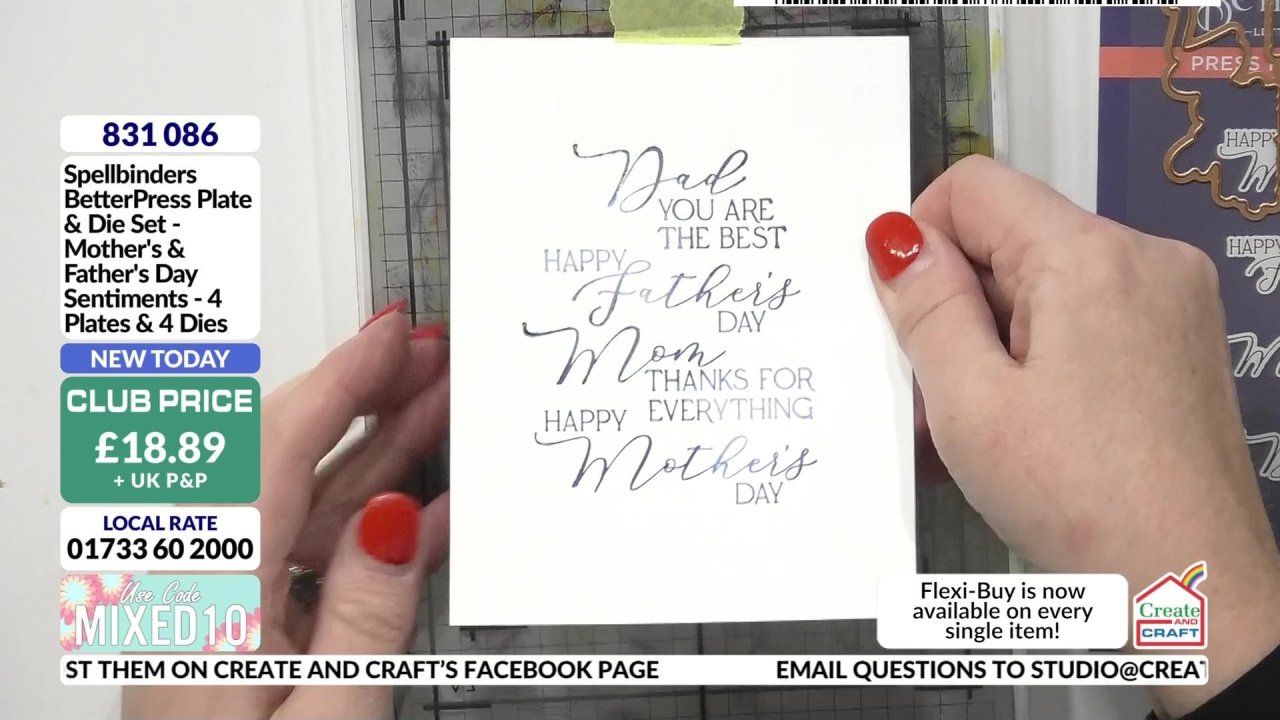 831 086
Spellbinders
BetterPress Plate
& Die Set -
Mother's &
Father's Day
Sentiments - 4
Plates & 4 Dies
NEW TODAY
CLUB PRICE
£18.89
+ UK P&P
LOCAL RATE
01733 60 2000
Use Code
MIXED10
Dad
YOU ARE
THE BEST
HAPPY
Father's
DAY
Mom
THANKS FOR
EVERYTHING
HAPPY
Mother's
DAY
PRESS
HAPPY
HAPPY
Flexi-Buy is now
available on every
single item!
Create
AND
CRAFT
ST THEM ON CREATE AND CRAFT'S FACEBOOK PAGE EMAIL QUESTIONS TO STUDIO@CREAT